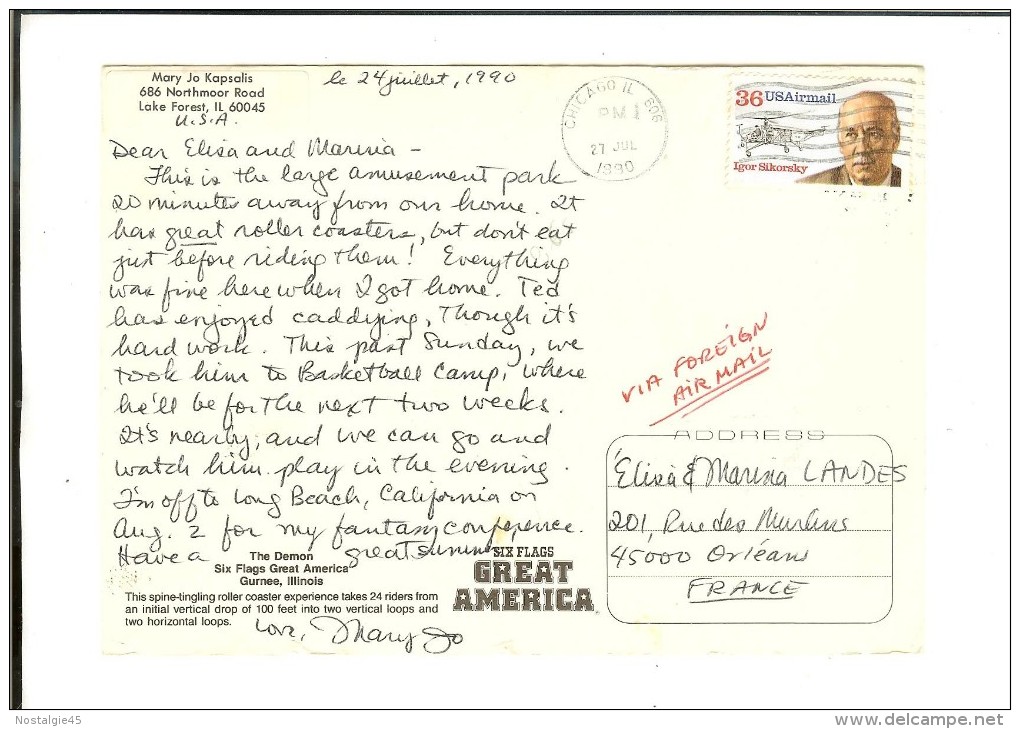 Mary Jo Kapsalis
686 Northmoor Road
Lake Forest, IL 60045
U.S.A.
le 24 juillet, 1990
CHICAGO IL 606
PM
27 JUL
1990
36 USAirmail
Igor Sikorsky
Dear Elisa and Marisia –
This is the large amusement park
20 minutes away from our home. It
has great roller coasters, but don't eat
just before riding them! Everything
was fine here when I got home. Ted
has enjoyed caddying, though it's
hard work. This past Sunday, we
took him to Basketball Camp, where
he'll be for the next two weeks.
It's nearby, and we can go and
watch him play in the evening.
I'm off to Long Beach, California on
Aug. 2 for my fantasy conference.
Have a great summer,
The Demon
Six Flags Great America
Gurnee, Illinois
This spine-tingling roller coaster experience takes 24 riders from
an initial vertical drop of 100 feet into two vertical loops and
two horizontal loops.
Love, Mary Jo
SIX FLAGS
GREAT
AMERICA
VIA FOREIGN
AIR MAIL
ADDRESS
Elisa & Marisia LANDES
201, Rue des Murlins
45000 Orléans
FRANCE
Nostalgie45
www.delcampe.net